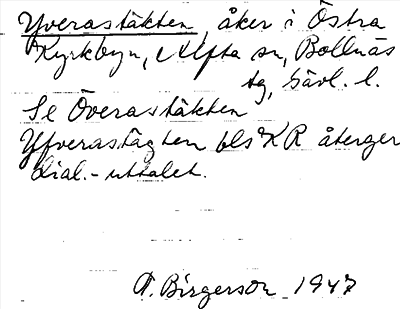 Yverastäkten, åker i Östra
Kyrkbyn, Alfta sn, Bollnäs
tg, Gävl. l.
Se Överastäkten
Yfverastägten bls KR återger
dial.-uttalet.
A. Birgerson 1947